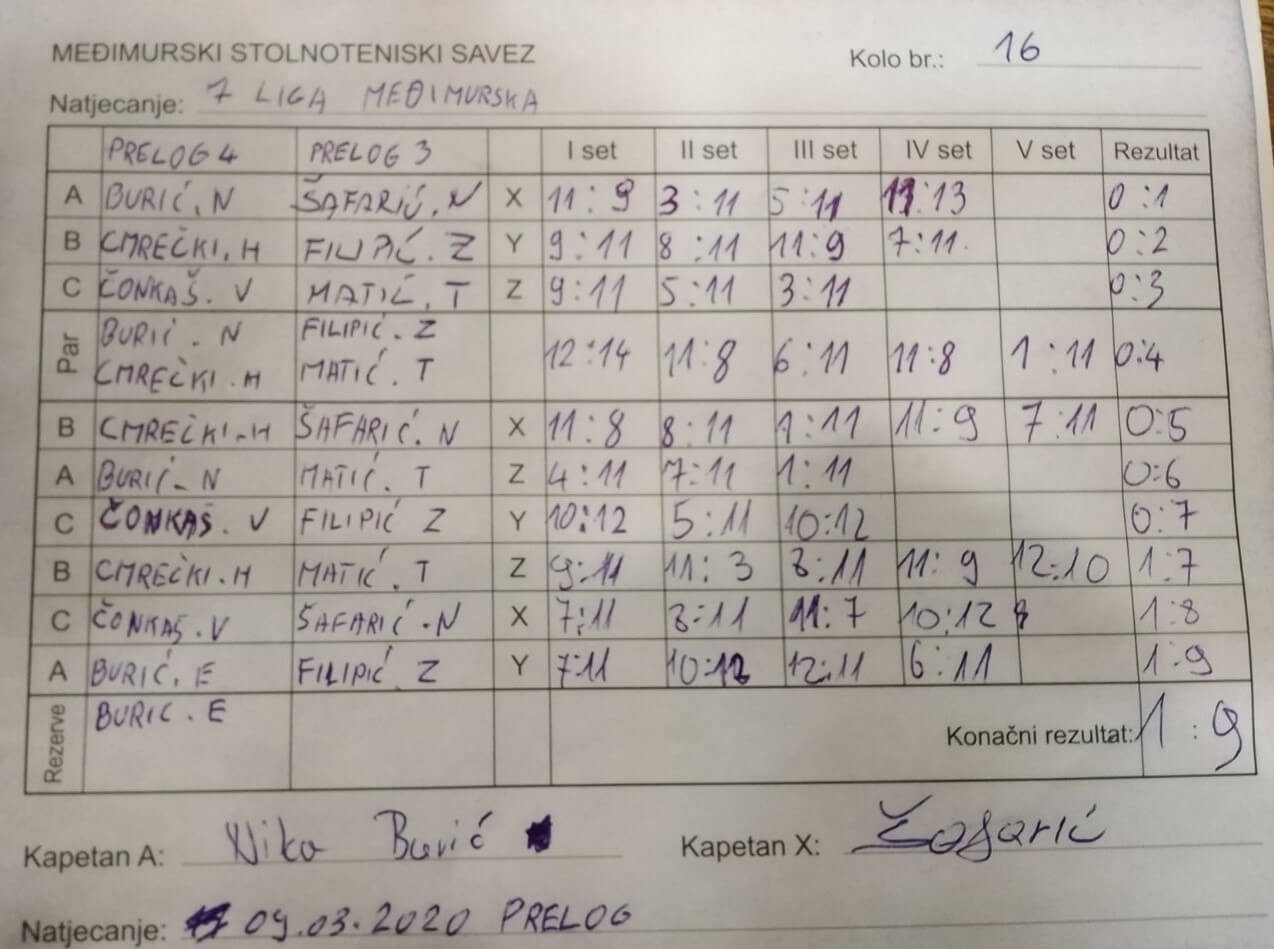 MEĐIMURSKI STOLNOTENISKI SAVEZ Kolo br.: 16
Natjecanje: 7 LIGA MEĐIMURSKA
PRELOG 4 PRELOG 3 I set II set III set IV set V set Rezultat
A BURIĆ. N ŠAFARIĆ. N X 11:9 3:11 5:11 11:13 0:1
B CMREČKI. M FILIPIĆ. Z Y 9:11 8:11 11:9 7:11. 0:2
C ČONKAŠ. V MATIĆ. T Z 9:11 5:11 3:11 0:3
Par BURIĆ. N FILIPIĆ. Z 12:14 11:8 6:11 11:8 1:11 0:4
CMREČKI. M MATIĆ. T
B CMREČKI-M ŠAFARIĆ. N X 11:8 8:11 1:11 11:9 7:11 0:5
A BURIĆ-N MATIĆ. T Z 4:11 7:11 1:11 0:6
C ČONKAŠ. V FILIPIĆ Z Y 10:12 5:11 10:12 0:7
B CMREČKI.M MATIĆ. T Z 9:11 11:3 8:11 11:9 12:10 1:7
C ČONKAŠ.V ŠAFARIĆ.N X 7:11 8-11 11:7 10:12 1:8
A BURIĆ. E FILIPIĆ. Z Y 7:11 10:12 12:11 6:11 1:9
Rezerve BURIĆ. E Konačni rezultat: 1:9
Kapetan A: Niko Burić Kapetan X:
Natjecanje: 09.03.2020 PRELOG